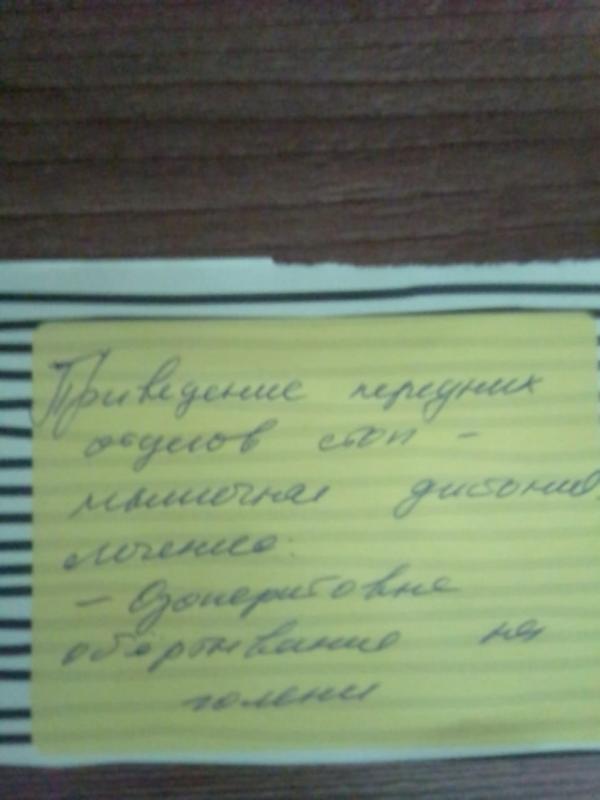 Приведение передних
отделов стоп -
мышечная дистония
Лечение:
- Озокеритовые
обёртывание на
голени